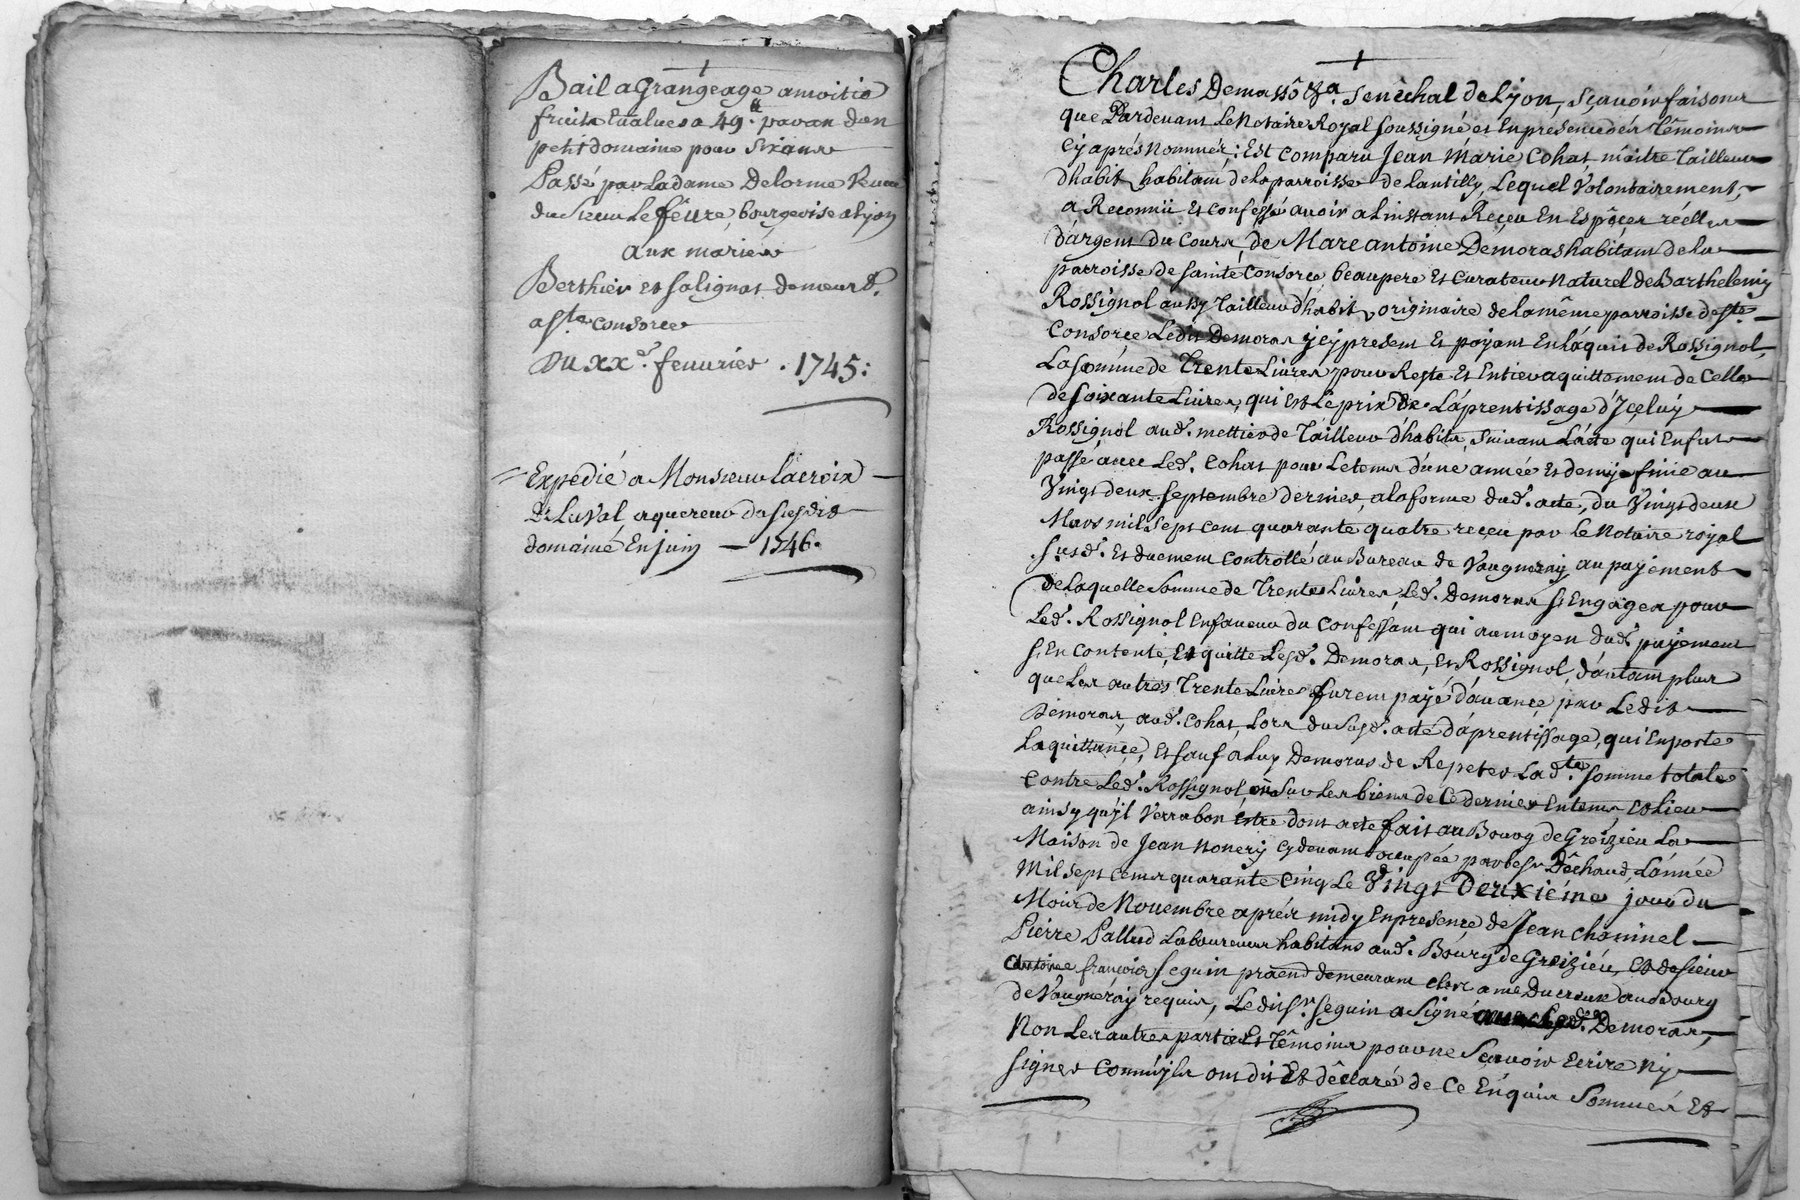 Bail a Grangeage a moitié
fruits Evalués a 49.# par an d'un
petit domaine pour Six ans
Passé par La dame Delorme Veuve
du Sieur Lefeure, bourgeoise a Lyon
aux mariés
Berthier et Salignat demeur.t
a S.te Consorce
Du XX.e feuurier . 1745 :
Expedié a Monsieur Lacroix
De Laval aquereur du susdit
domaine En juin — 1746.
Charles Demassô &a. Senéchal de Lyon, Sçauoir faisons
que Pardeuant Le Notaire Royal Soussigné et En présence des Témoins
cy aprés Nommés ; Est comparu Jean Marie Cohat maitre Tailleur
d'habits habitant de la parroisse de Lantilly, Lequel Volontairement,
a Reconnü Et confessé auoir a L'instant Reçeu En Espéces réelles
d'argent du Cours, de Marc antoine Demoras habitant de la
parroisse de Sainte Consorce beaupere Et Curateur Naturel de Barthelemy
Rossignol aussy Tailleur d'habits, originaire de la même parroisse de S.te
Consorce Ledit Demoras jcy present Et payant En L'aquit de Rossignol,
La Somme de Trente Liures, pour Reste Et Entier aquittement de Celle
de Soixante Liures, qui Est Le prix De L'aprentissage d'Jceluy
Rossignol aud. mettier de Tailleur d'habits, Suiuant L'acte qui En fut
passé auec Led. Cohat pour Le tems d'une année Et demÿ finie au
Vingt deux Septembre dernier, a la forme dud. acte, du Vingt deux
Mars mil Sept cent quarante quatre reçeu par Le Notaire royal
Susd. Et duement Controllé au Bureau de Vaugneray, au payement
De Laquelle Somme de Trente Liures Led. Demoras S'Engagea pour
Led. Rossignol En faueur du Confessant qui au moyen dud. payement
S'En Contente, Et quitte Lesd. Demoras, Et Rossignol, d'autant plus
que Les autres Trente Liures furent payé d'auance par Ledit
Demoras, aud. Cohat, Lors du Susd. acte d'aprentissage, qui En porte
La quittance, Et Sauf a Luy Demoras de Repeter La d.te Somme totale
Contre Led. Rossignol ou Sur Les biens de Ce dernier En tems Et Lieu
ainsy qu'jl Verra bon Estre dont acte fait au Bourg de Greizieu La
Maison de Jean Nonery cy deuant occupée par Le S.r Dêchaud, L'année
Mil Sept Cens quarante Cinq Le Vingt Deuxiéme jour du
Mois de Nouembre aprés midy En presence de Jean Choninel
Pierre Pallud Laboureurs habitans aud. Bourg de Greizieu, Et de Sieur
françois Seguin demeurant Ducreux au Bourg
de Vaugneray requis, Ledit S.r Seguin a Signé Demoras,
Non Les autres parties Et Témoins pour ne Sçauoir Ecrire Ny
Signer Comm'jls ont dit Et déclaré de Ce Enquis Sommés Et